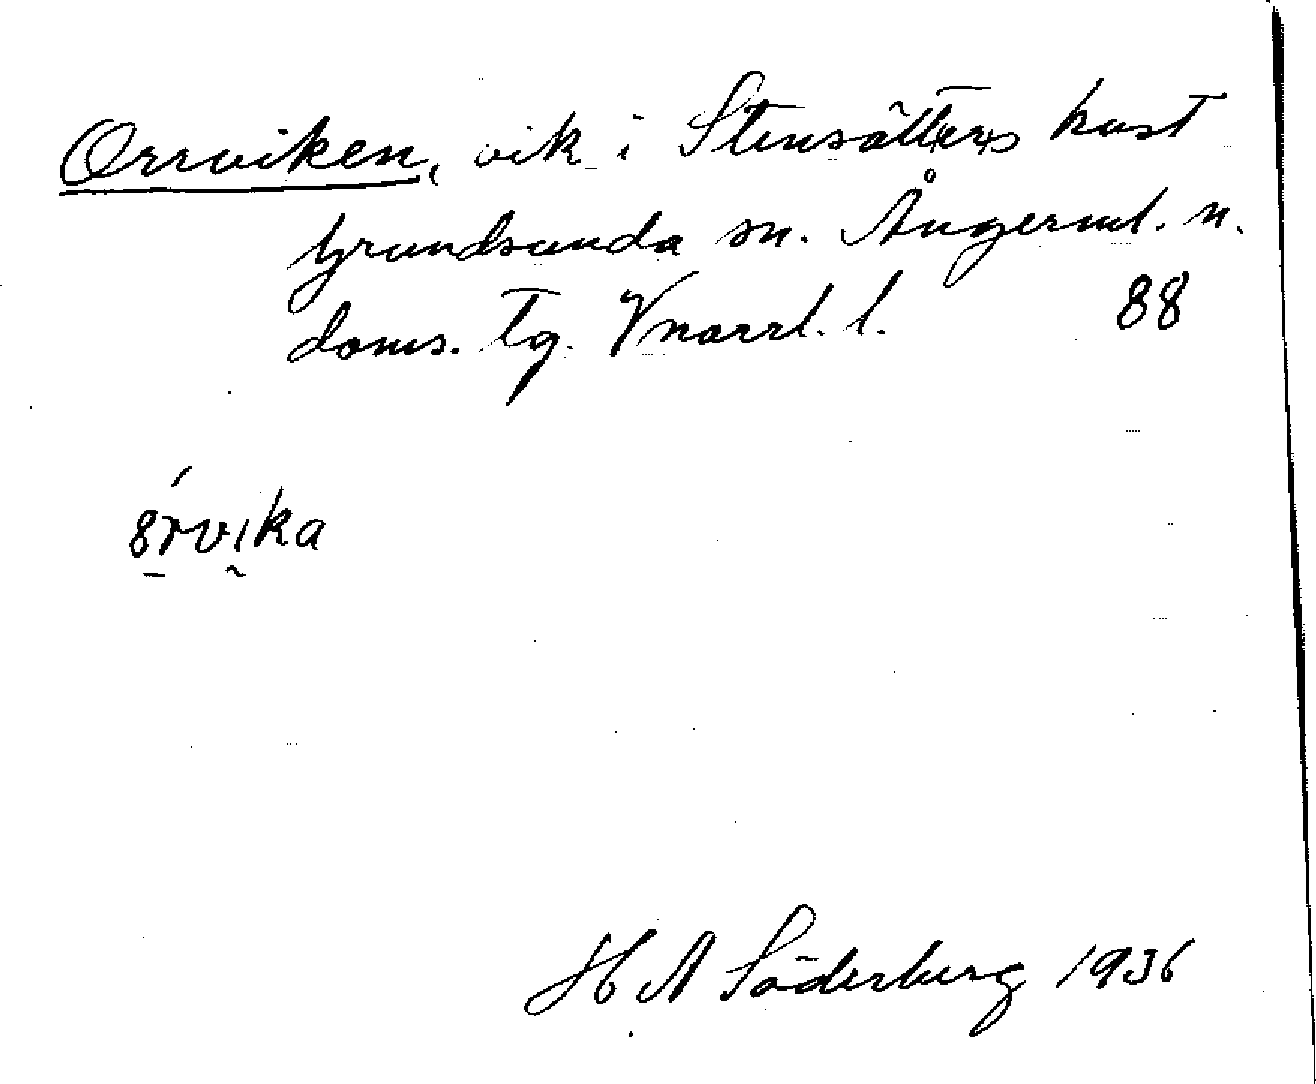 Orrviken, vik i Stensätters kust
Grundsunda sn. Ångerml. n.
doms. tg. Vnorrl. l. 88
8́rvika
H A Söderberg 1936